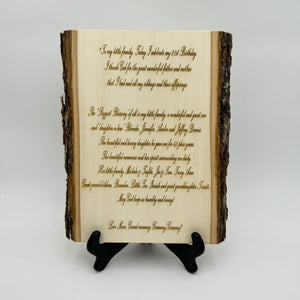 "To my little family, Today I celebrate my 81st Birthday
I thank God for the great wonderful father and mother
that I had and all my siblings and their offsprings.
The Biggest Blessing of all is my little family, a wonderful and great son
and daughter-n-law Rhonda, Jennifer, and Jeffrey Dennis
The beautiful and loving daughter he gave me for 43 plus years
The beautiful memories and her spirit surrounding me daily.
Her little family Michele &, Jim & Tim, Tracy Ann
Great grandchildren, Brandon, Little Tim, and great granddaughter
May God keep us healthy and loving!
Love Mom, Grand mommy, Grammy Grammy"